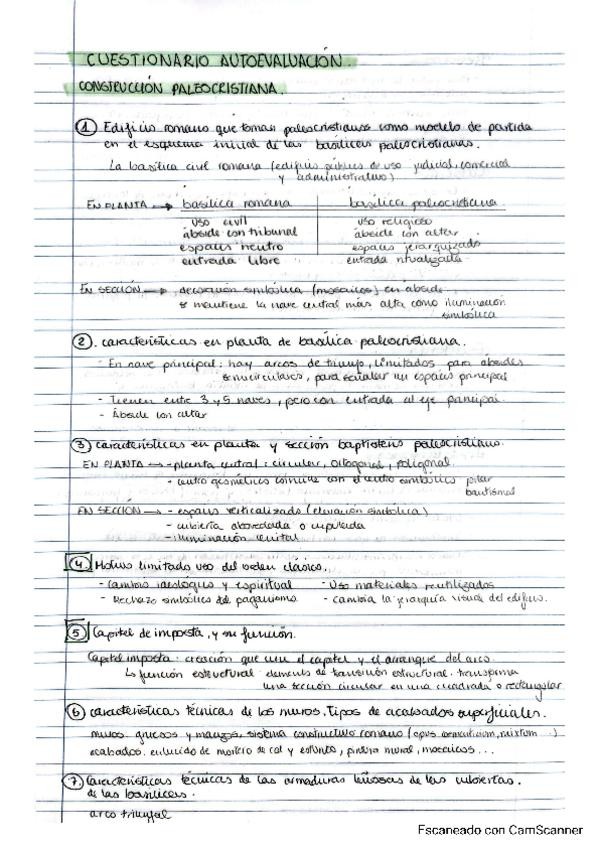 CUESTIONARIO AUTOEVALUACIÓN.
CONSTRUCCIÓN PALEOCRISTIANA.
1 Edificio romano que toman paleocristianos como modelo de partida
en el esquema inicial de las basílicas paleocristianas.
La basílica civil romana (edificio público de uso judicial, comercial
y administrativo)
EN PLANTA → basílica romana basílica paleocristiana
uso civil uso religioso
ábside con tribunal ábside con altar.
espacio neutro espacio jerarquizado
entrada libre entrada ritualizada
EN SECCIÓN → decoración simbólica (mosaicos) en ábside
se mantiene la nave central más alta como iluminación
simbólica
2. características en planta de basílica paleocristiana.
- En nave principal: hay arcos de triunfo, limitados para ábsides
semicirculares, para señalar un espacio principal
- Tienen entre 3 y 5 naves, pero con entrada al eje principal
- Ábside con altar
3 características en planta y sección baptisterio paleocristiano.
EN PLANTA → - planta central: circular, octogonal, poligonal.
- centro geométrico coincide con el centro simbólico pilar
bautismal
EN SECCIÓN → - espacio verticalizado (elevación simbólica)
- cubierta abovedada o cupulada
- iluminación cenital
4. Motivos limitado uso del orden clásico.
- Cambio ideológico y espiritual - Uso materiales reutilizados
- Rechazo simbólico del paganismo - cambia la jerarquía visual del edificio.
5 Capitel de imposta, y su función.
Capitel imposta: creación que une el capitel y el arranque del arco
↳ función estructural: elemento de transición estructural. transforma
una sección circular en una cuadrada o rectangular
6 características técnicas de los muros. Tipos de acabados superficiales.
muros: gruesos y macizos, sistema constructivo romano (opus caementicium, mixtum...)
acabados: enlucido de mortero de cal y estuco, pintura mural, mosaicos...
7. Características técnicas de las armaduras leñosas de las cubiertas.
de las basílicas.
arco triunfal
Escaneado con CamScanner